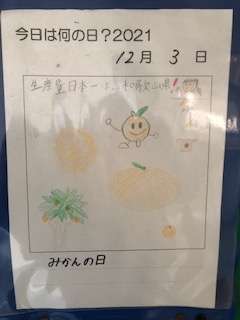 今日は何の日?2021
12月 3日
生産量日本一は、和歌山県!
みかんの日